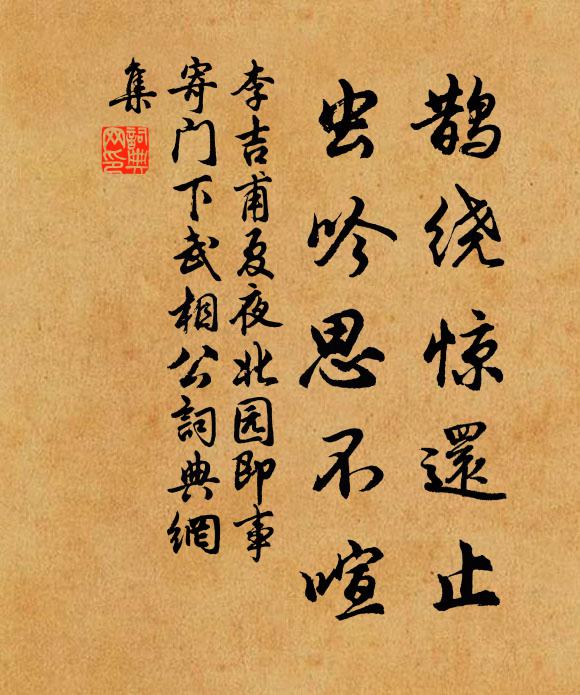 鹊绕惊還止
虫吟思不喧
李吉甫夏夜北园即事
寄门下武相公詞典網
集
詞典
网印